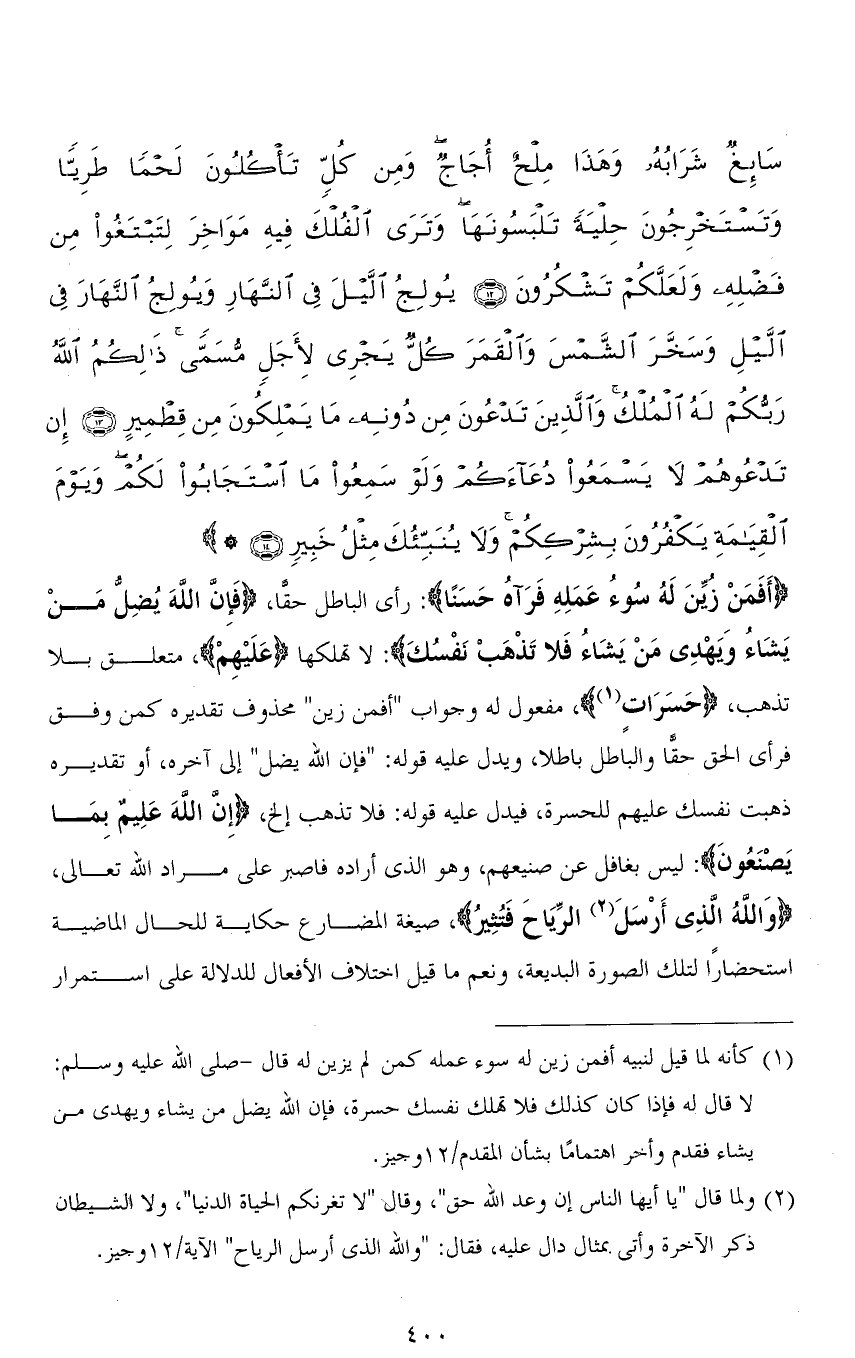 سَآئِغٌ شَرَابُهُۥ وَهَٰذَا مِلْحٌ أُجَاجٌ ۖ وَمِن كُلٍّ تَأْكُلُونَ لَحْمًا طَرِيًّا
وَتَسْتَخْرِجُونَ حِلْيَةً تَلْبَسُونَهَا ۖ وَتَرَى ٱلْفُلْكَ فِيهِ مَوَاخِرَ لِتَبْتَغُوا۟ مِن
فَضْلِهِۦ وَلَعَلَّكُمْ تَشْكُرُونَ ١٢ يُولِجُ ٱلَّيْلَ فِى ٱلنَّهَارِ وَيُولِجُ ٱلنَّهَارَ فِى
ٱلَّيْلِ وَسَخَّرَ ٱلشَّمْسَ وَٱلْقَمَرَ كُلٌّ يَجْرِى لِأَجَلٍ مُّسَمًّى ۚ ذَٰلِكُمُ ٱللَّهُ
رَبُّكُمْ لَهُ ٱلْمُلْكُ ۚ وَٱلَّذِينَ تَدْعُونَ مِن دُونِهِۦ مَا يَمْلِكُونَ مِن قِطْمِيرٍ ١٣ إِن
تَدْعُوهُمْ لَا يَسْمَعُوا۟ دُعَآءَكُمْ وَلَوْ سَمِعُوا۟ مَا ٱسْتَجَابُوا۟ لَكُمْ ۖ وَيَوْمَ
ٱلْقِيَٰمَةِ يَكْفُرُونَ بِشِرْكِكُمْ ۚ وَلَا يُنَبِّئُكَ مِثْلُ خَبِيرٍ ١٤ * ﴾
﴿أَفَمَنْ زُيِّنَ لَهُ سُوءُ عَمَلِهِ فَرَآهُ حَسَنًا﴾: رأى الباطل حقًّا، ﴿فَإِنَّ اللَّهَ يُضِلُّ مَنْ
يَشَاءُ وَيَهْدِى مَنْ يَشَاءُ فَلا تَذْهَبْ نَفْسُكَ﴾: لا تهلكها ﴿عَلَيْهِمْ﴾، متعلق بلا
تذهب، ﴿حَسَرَاتٍ(١)﴾، مفعول له وجواب "أفمن زين" محذوف تقديره كمن وفق
فرأى الحق حقًّا والباطل باطلا، ويدل عليه قوله: "فإن الله يضل" إلى آخره، أو تقديره
ذهبت نفسك عليهم للحسرة، فيدل عليه قوله: فلا تذهب إلخ، ﴿إِنَّ اللَّهَ عَلِيمٌ بِمَا
يَصْنَعُونَ﴾: ليس بغافل عن صنيعهم، وهو الذى أراده فاصبر على مراد الله تعالى،
﴿وَاللَّهُ الَّذِى أَرْسَلَ(٢) الرِّيَاحَ فَتُثِيرُ﴾، صيغة المضارع حكاية للحال الماضية
استحضارًا لتلك الصورة البديعة، ونعم ما قيل اختلاف الأفعال للدلالة على استمرار
(١) كأنه لما قيل لنبيه أفمن زين له سوء عمله كمن لم يزين له قال -صلى الله عليه وسلم:
لا قال له فإذا كان كذلك فلا تهلك نفسك حسرة، فإن الله يضل من يشاء ويهدى من
يشاء فقدم وأخر اهتمامًا بشأن المقدم/١٢وجيز.
(٢) ولما قال "يا أيها الناس إن وعد الله حق"، وقال "لا تغرنكم الحياة الدنيا"، ولا الشيطان
ذكر الآخرة وأتى بمثال دال عليه، فقال: "والله الذى أرسل الرياح" الآية/١٢وجيز.
٤٠٠